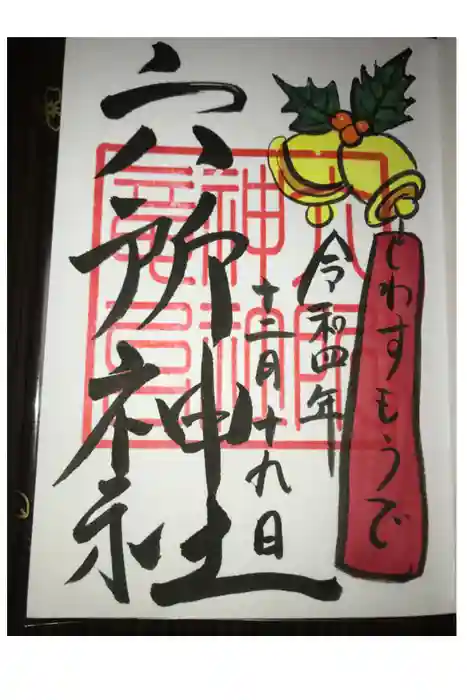 しわすもうで
令和四年
十二月十九日
六所神社